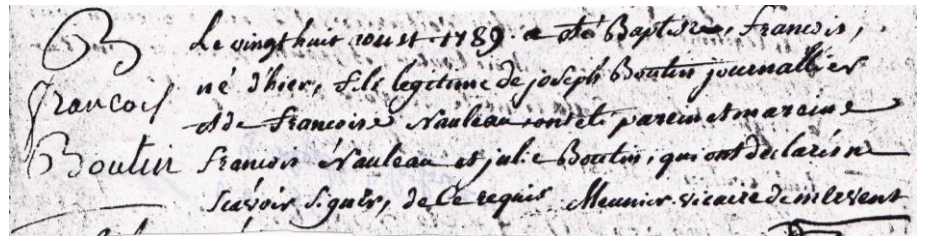 B
françois
Boutin
Le vingt huit aoust 1789. a été Baptisé, francois,
né d'hier, fils legitime de joseph Boutin journallier
et de francoise Nauleau ont été parein et maraine
francois Nauleau et julie Boutin, qui ont declarés ne
scavoir signer, de ce requis Meunier vicaire de